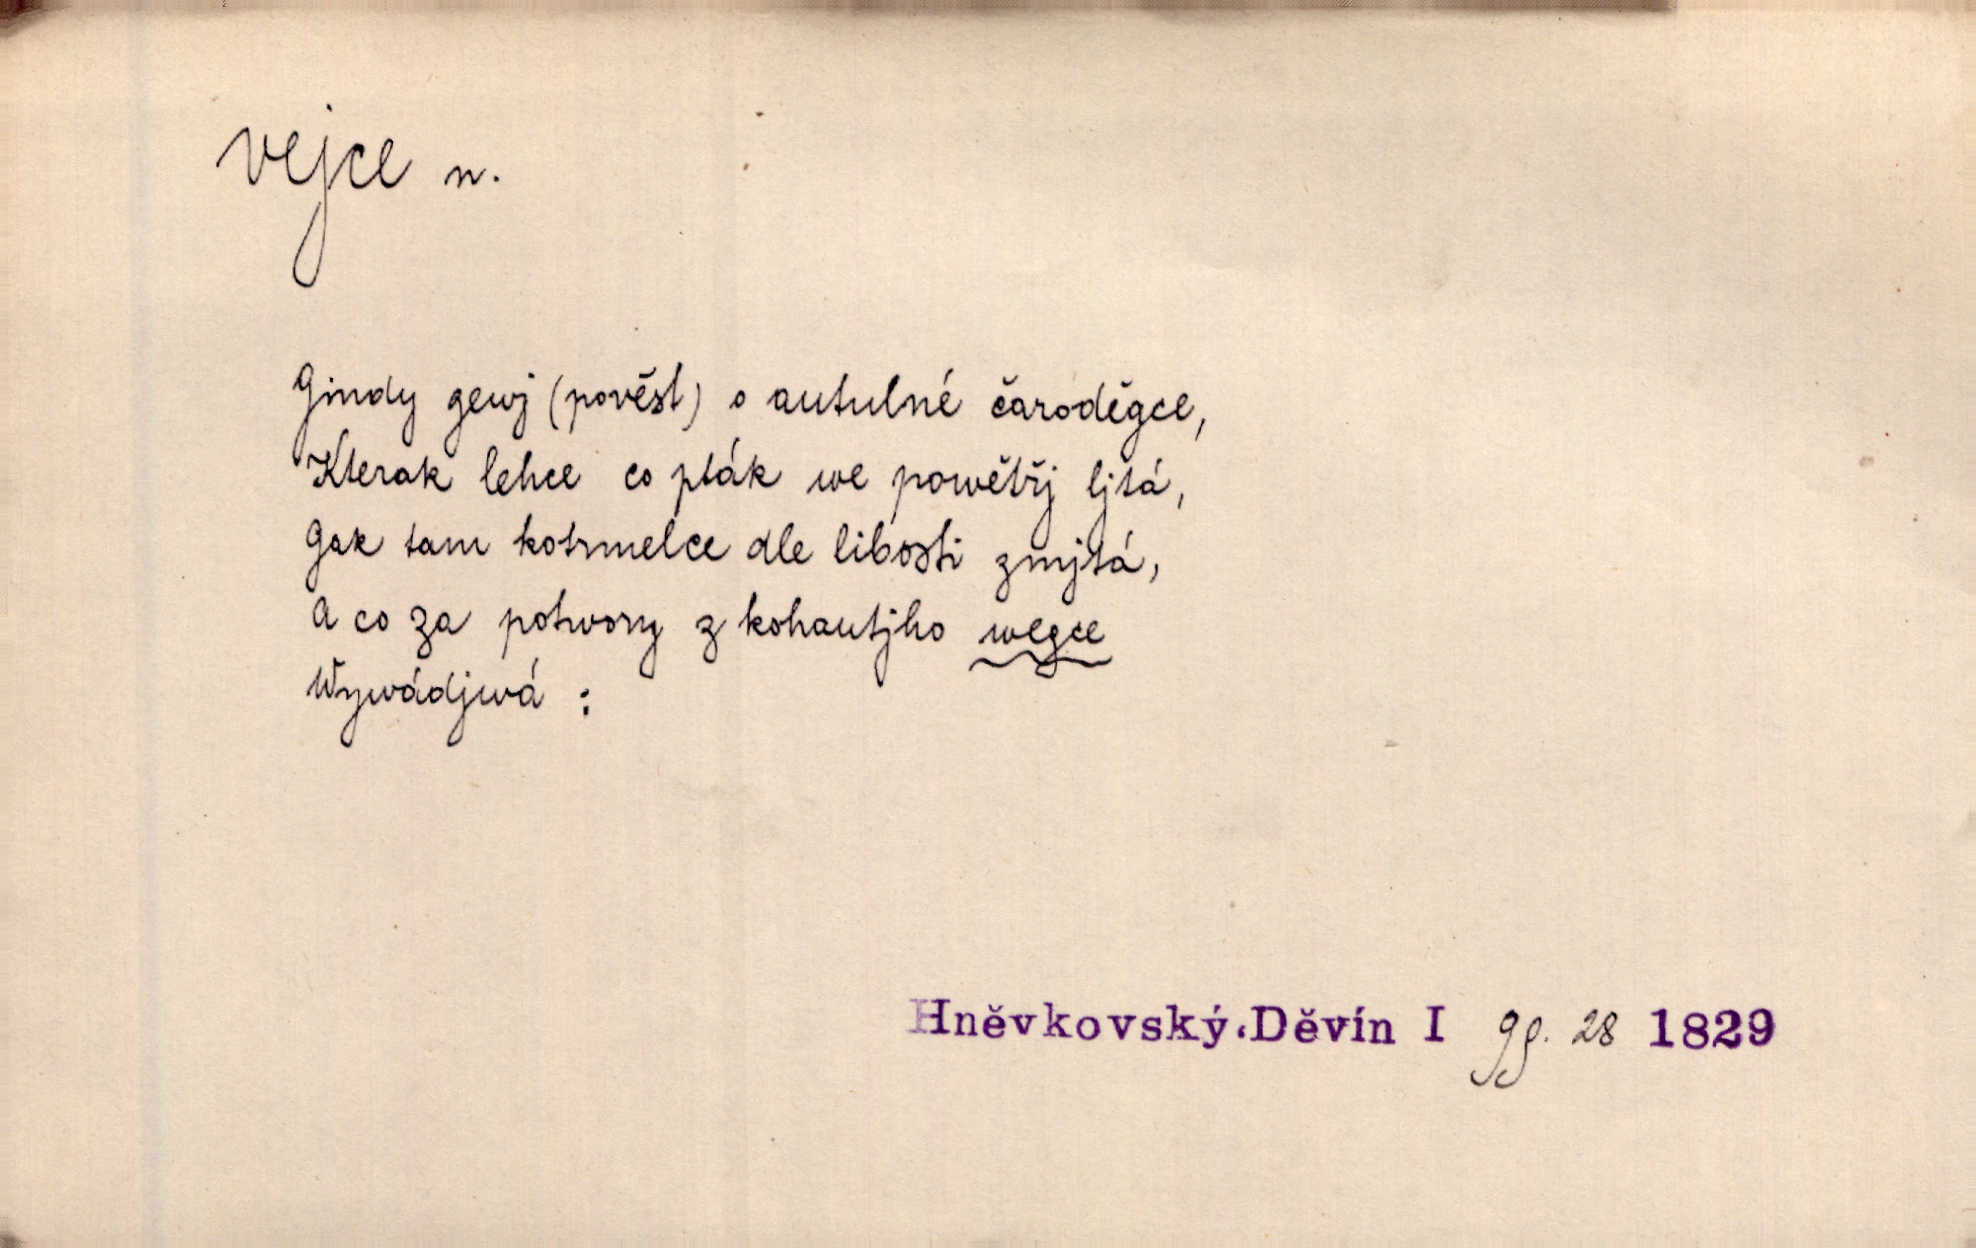 vejce n.
Gindy gewj (pověst) o autulné čaroděgce,
Kterak lehce co pták we powětřj ljtá,
Gak tam kotrmelce dle libosti zmjtá,
A co za potwory z kohautjho wegce
Wywádjwá :
Hněvkovský, Děvín I 28 1829